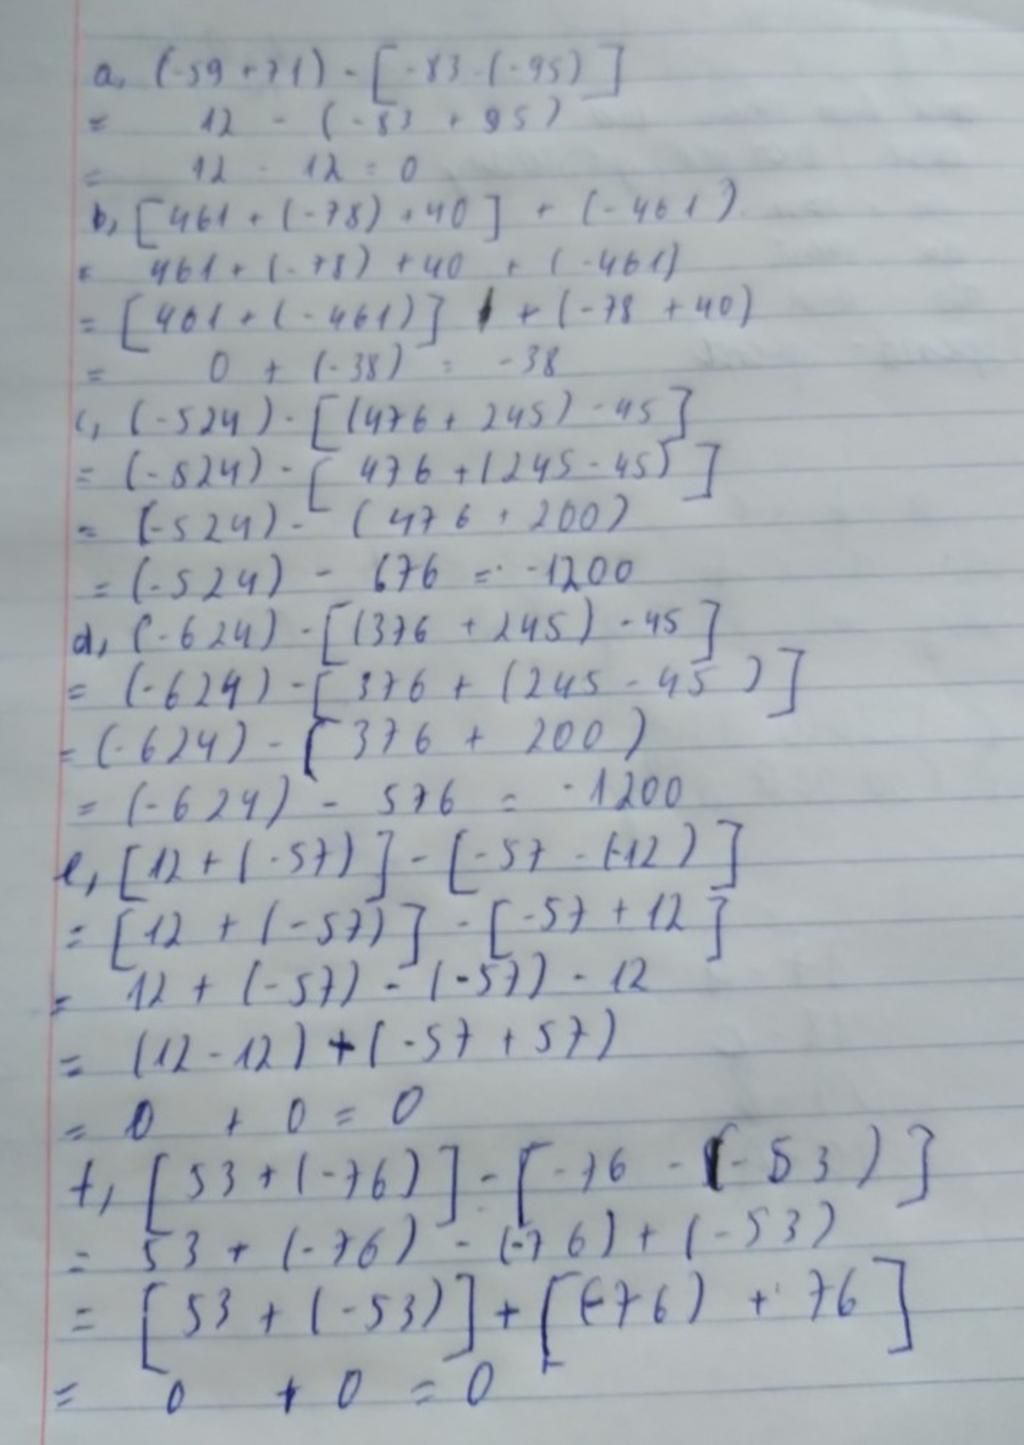 a, (-59+71) - [-83-(-95)]
= 12 - (-83 + 95)
= 12 - 12 = 0
b, [461 + (-78) + 40] + (-461)
= 461 + (-78) + 40 + (-461)
= [461 + (-461)] + (-78 + 40)
= 0 + (-38) = -38
c, (-524) - [(476 + 245) - 45]
= (-524) - [476 + (245 - 45)]
= (-524) - (476 + 200)
= (-524) - 676 = -1200
d, (-624) - [(376 + 245) - 45]
= (-624) - [376 + (245 - 45)]
= (-624) - (376 + 200)
= (-624) - 576 = -1200
e, [12 + (-57)] - [-57 - (-12)]
= [12 + (-57)] - [-57 + 12]
= 12 + (-57) - (-57) - 12
= (12 - 12) + (-57 + 57)
= 0 + 0 = 0
f, [53 + (-76)] - [-76 - (-53)]
= 53 + (-76) - (-76) + (-53)
= [53 + (-53)] + [(-76) + 76]
= 0 + 0 = 0